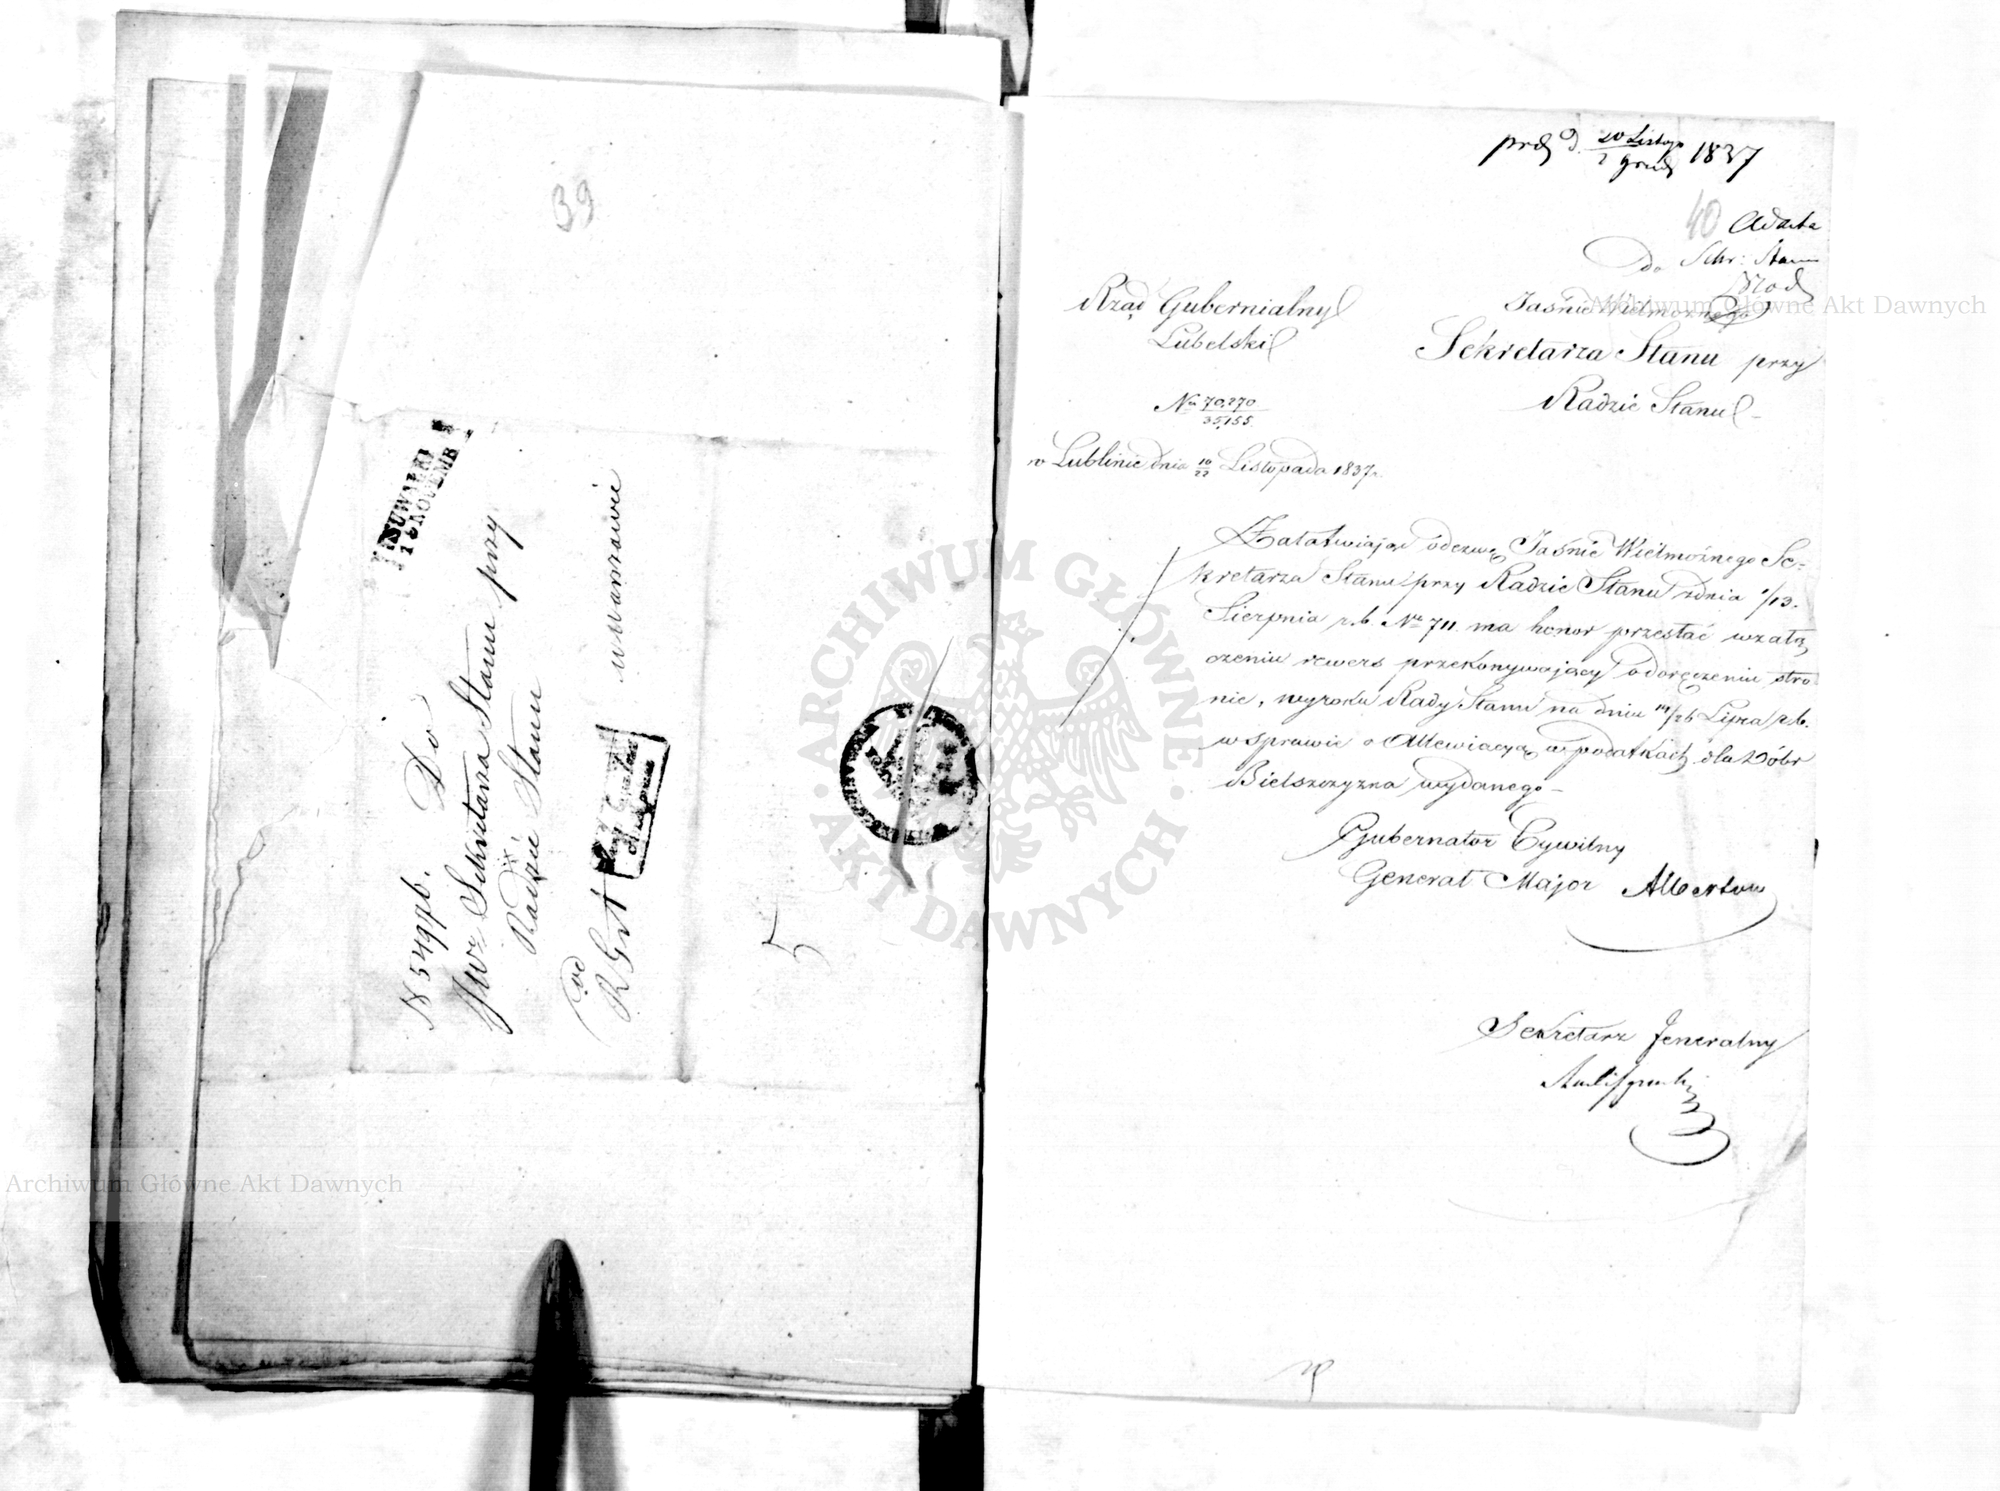 39
SUWAŁKI
NOVEMB
N 54976.
Do
JWo Sekretarza Stanu przy
Radzie Stanu
od
w Warszawie
5
prez d. 20 Listop / 2 Grud 1837
40
Ad acta
do Sekr: Stanu
Rząd Gubernialny
Lubelski
No 70,270 / 35,155.
w Lublinie dnia 10/22 Listopada 1837 r.
Jaśnie Wielmożnego
Sekretarza Stanu przy
Radzie Stanu
Załatwiając odezwę Jaśnie Wielmożnego Se-
kretarza Stanu przy Radzie Stanu z dnia 1/13.
Sierpnia r. b. No 711. ma honor przesłać w załą
czeniu rewers przekonywający o doręczeniu stro
nie, wyroku Rady Stanu na dniu 14/26 Lipca r. b.
w sprawie o Allewiacyą w podatkach dla Dóbr
Bielszczyzna wydanego
Gubernator Cywilny
Generał Major Albertow
Sekretarz Jeneralny
Archiwum Główne Akt Dawnych
Archiwum Główne Akt Dawnych
ARCHIWUM GŁÓWNE AKT DAWNYCH